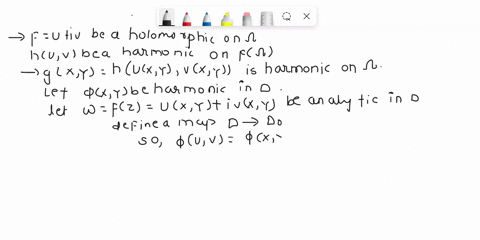 → F = U+iv be a holomorphic on Ω
h(U,V) be a harmonic on f(Ω)
→ g(X,Y) = h(U(X,Y), V(X,Y)) is harmonic on Ω.
Let ϕ(X,Y) be harmonic in D.
let ω = F(z) = U(X,Y)+iv(X,Y) be analytic in D
define a map D → D0
so, ϕ(U,V) = ϕ(X,